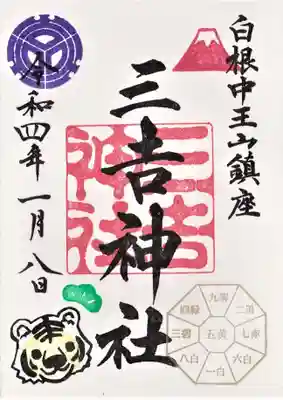 白根中王山鎮座
三吉神社
三吉
神社
令和四年一月八日
九紫
四緑
二黒
三碧
五黄
七赤
八白
六白
一白